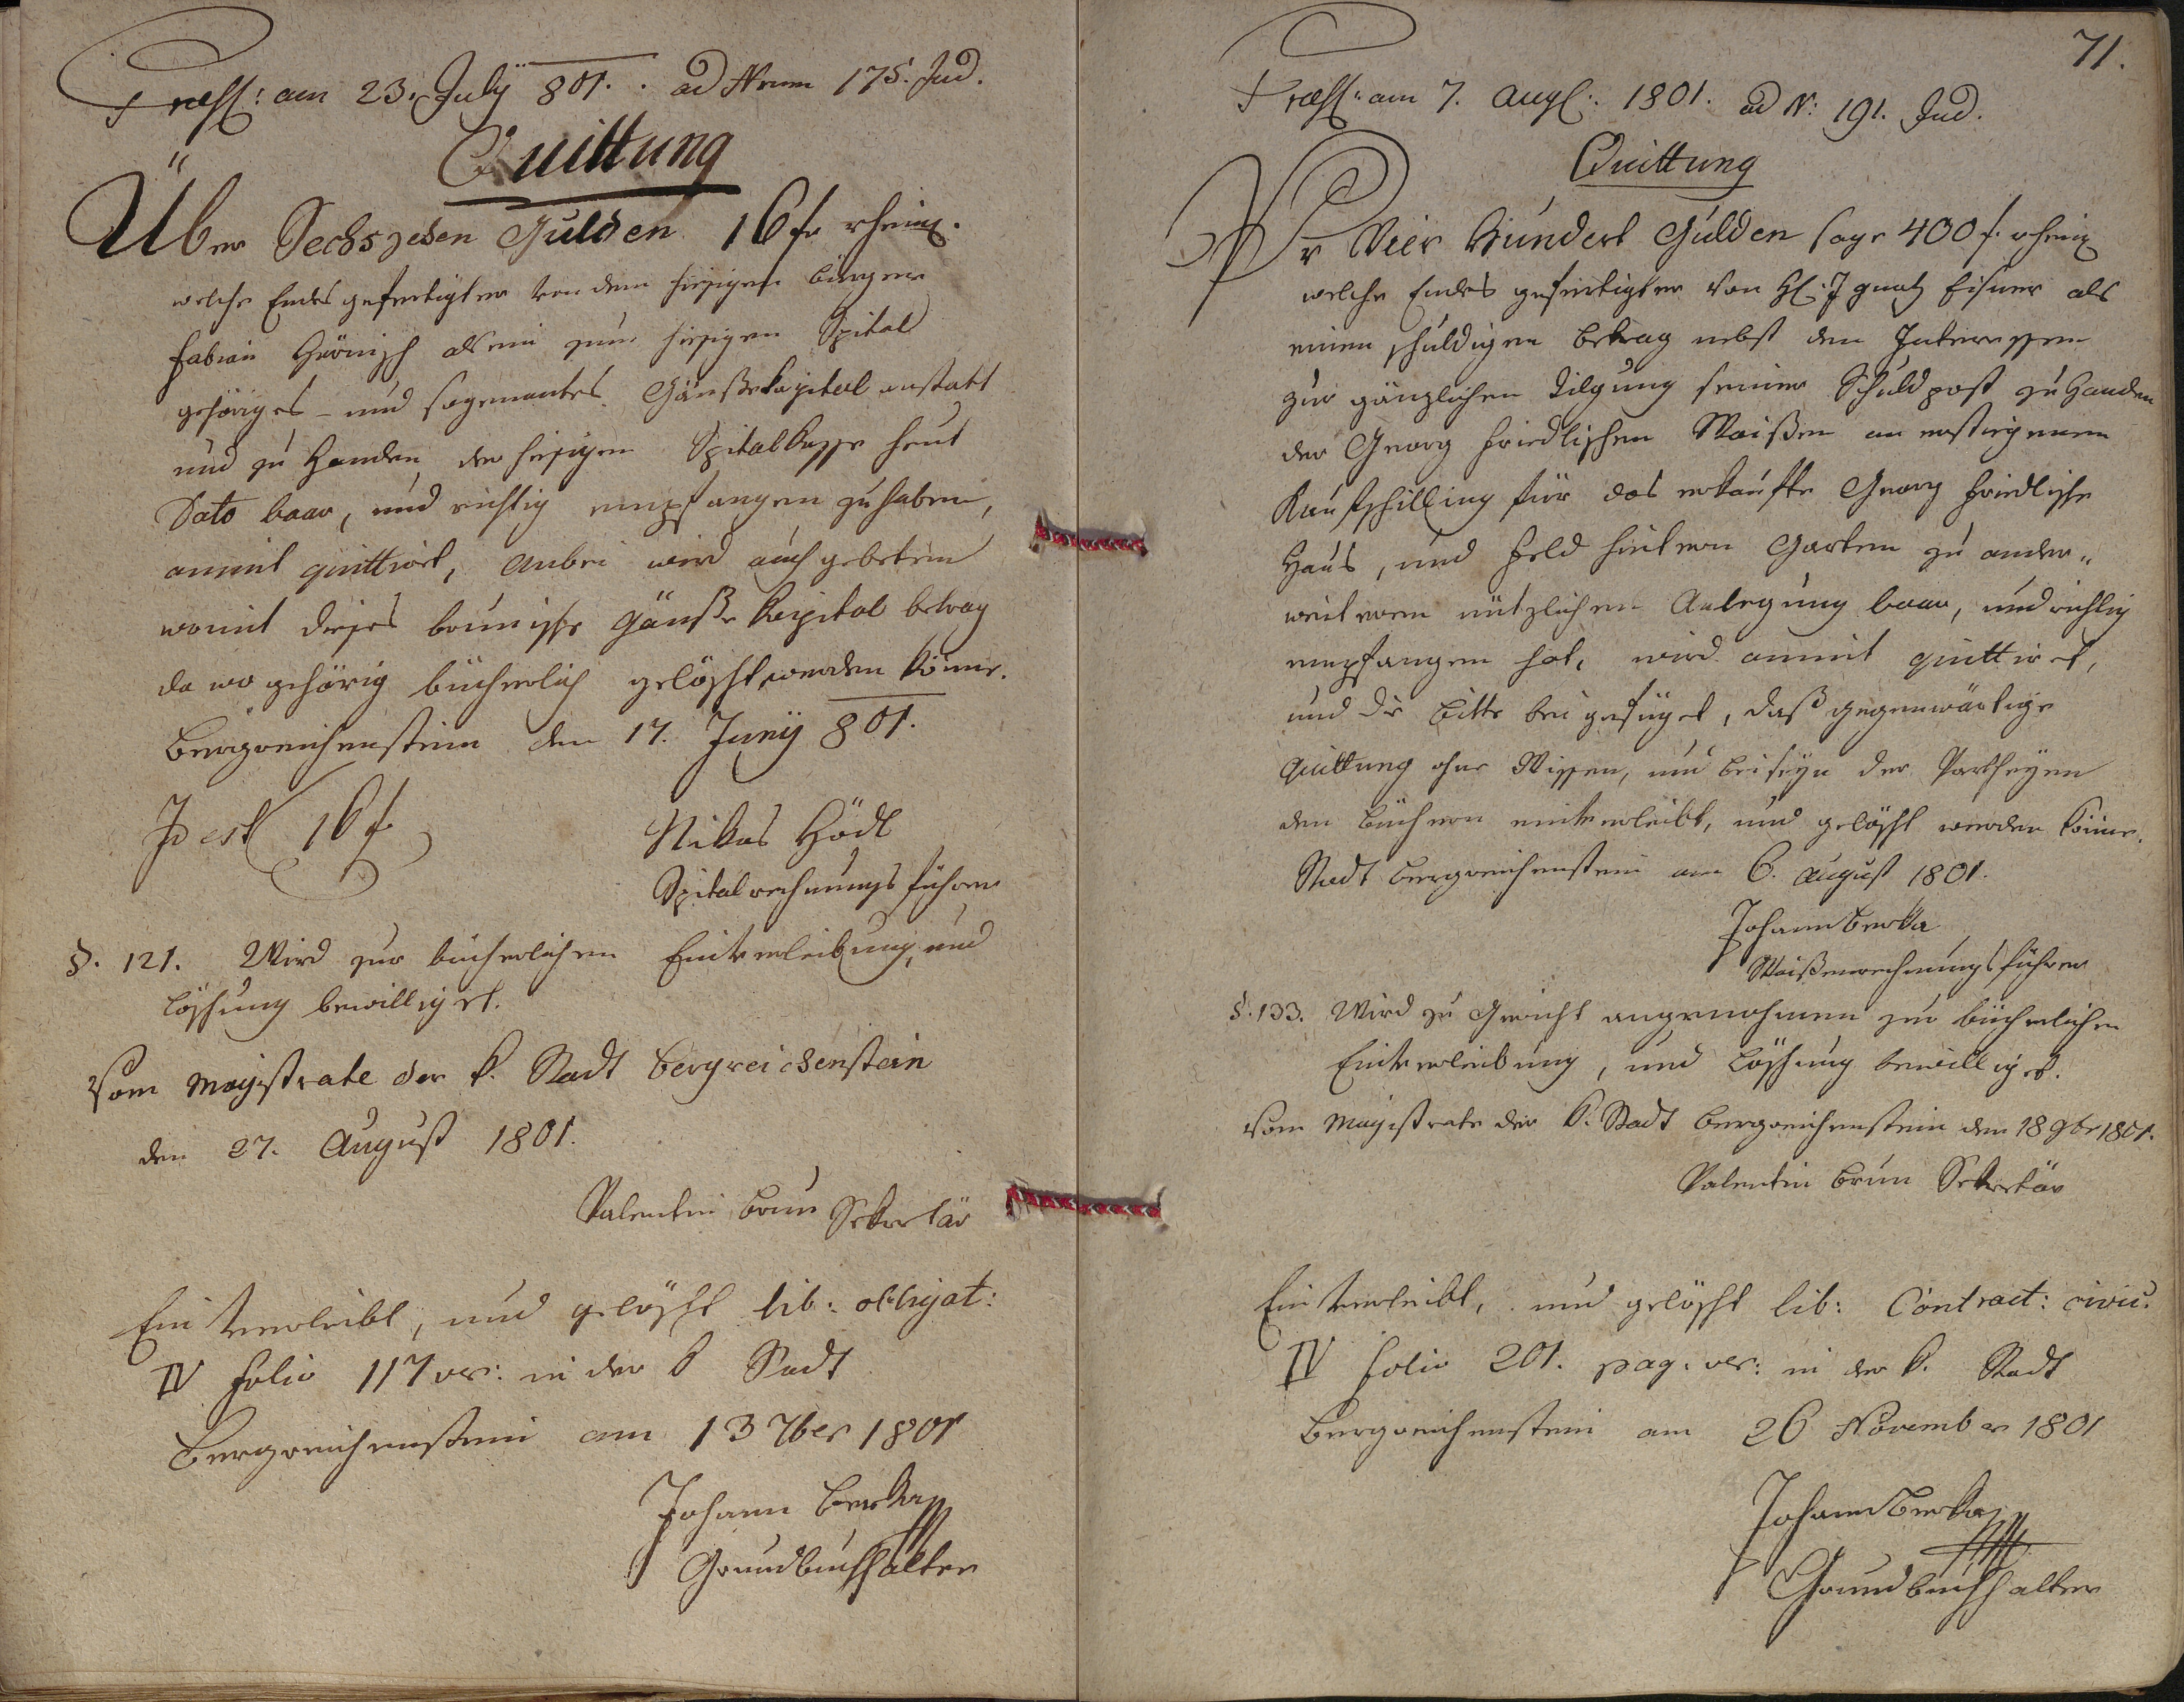 Praess: am 23. July 801. ad Num 175. Jud.
Quittung
Über Sechszehen Gulden 16 f rheinl.
welche Endesgefertigter von dem hiesigen bürger
Fabian Hörnisch als ein zum hiesigen Spital
gehöriges – und sogenantes Gänßekapital anstatt
und zu Handen der hiesigen Spitalkasse heut
Dato baar, und richtig empfangen zu haben,
anmit quittirt, anbei wird auch gebeten
womit dieses Gänße Kapital betrag
da wo gehörig bücherlich gelöscht werden könne.
Bergreichenstein den 17. Juny 801.
Id est 16 f
Niklas Hödl
Spitalrechnungsführer
§. 121. Wird zur bücherlichen Einverleibung, und
löschung bewilliget.
Vom Magistrate der k. Stadt Bergreichenstein
den 27. August 1801.
Valentin Brun Sekretär
Einverleibt, und gelöscht lib: obligat:
IV Folio 117 ver: in der k Stadt
Bergreichenstein am 13 7ber 1801
Johann Berka
Grundbuchhalter
71.
Praess: am 7. Augl: 1801. ad N: 191. Jud.
Quittung
Pr Vier Hundert Gulden sage 400 f. rheinl
welche Endes gefertigter von H: Ignatz Eisner als
einen schuldigen betrag nebst den Interessen
zur gänzlichen Tilgung seiner Schuldpost zu Handen
der Georg Friedlischen Waißen an erstiegenen
Kaufschilling für das erkaufte Georg Friedlische
Haus, und Feld hintern Garten zu ander„
weiteren nützlichen Anlegung baar, und richtig
empfangen hat, wird anmit quittiret,
und die Bitte beigefüget, daß gegenwärtige
Quittung ohne Wissen, und beiseyn der Partheyen
den Büchern einverleibt, und gelöscht werden könne.
Stadt Bergreichenstein am 6. August 1801.
Johann Berka
Waißenrechnungsführer
§. 133. Wird zu Gericht angenohmen zur bücherlichen
Einverleibung, und Löschung bewilliget.
Vom Magistrate der k. Stadt Bergreichenstein den 18 9br 1801.
Valentin Brun Sekretär
Einverleibt, und gelöscht lib: Contract: civic.
IV Folio 201. pag: ver: in der k. Stadt
Bergreichenstein am 26 November 1801
Johann Berka
Grundbuchhalter